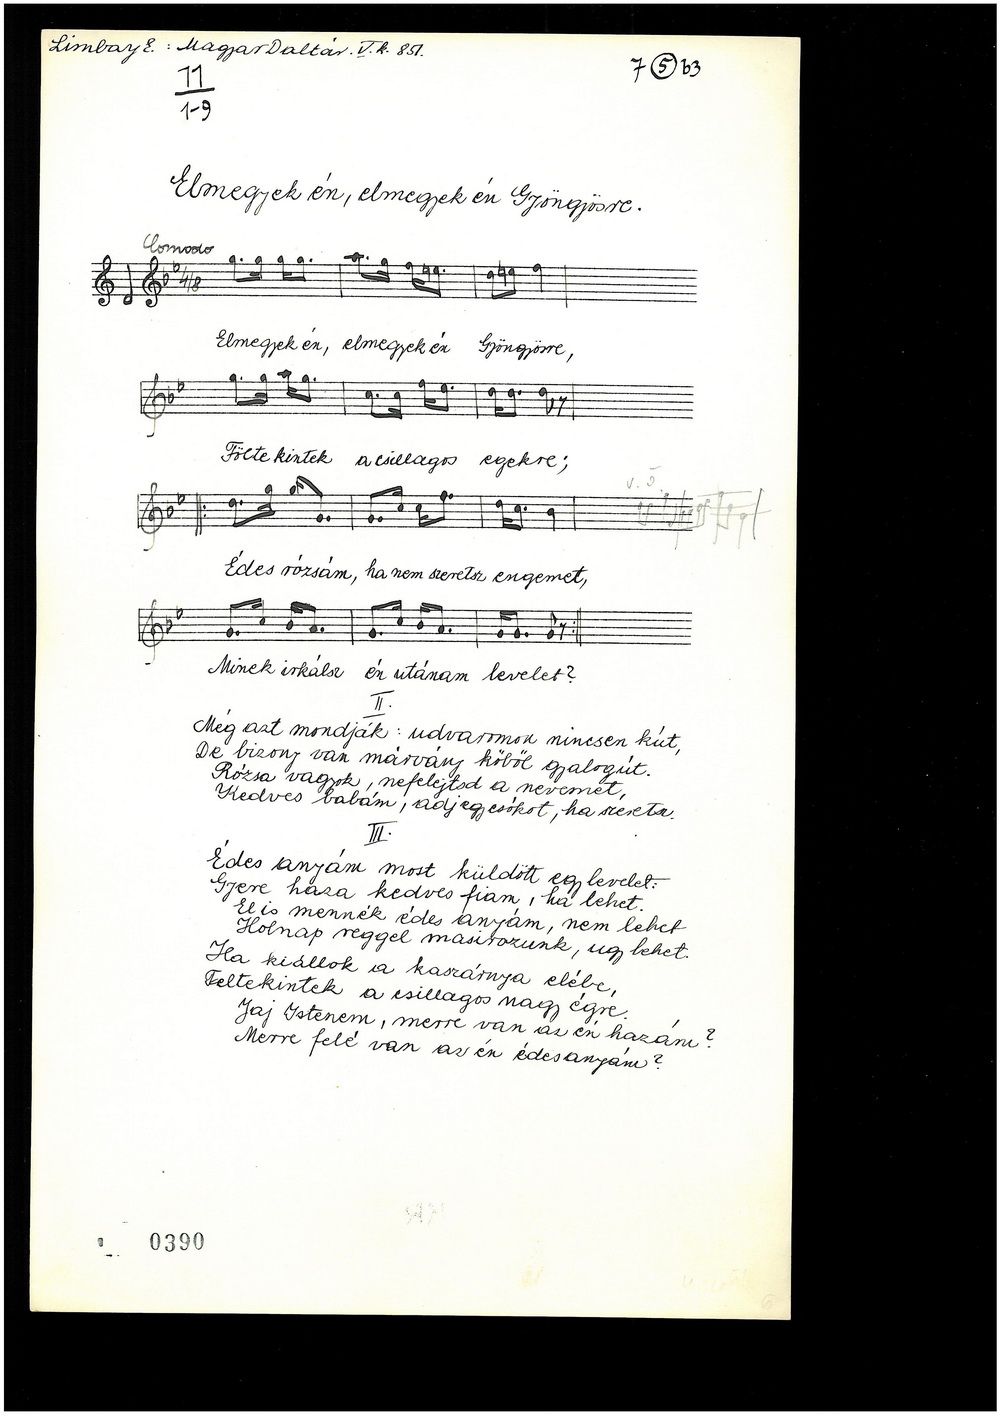 Limbay E. : Magyar Daltár. V. k. 851.
11
1-9
7 5 b3
Elmegyek én, elmegyek én Gyöngyösre.
Comodo
4/8
Elmegyek én, elmegyek én Gyöngyösre,
Föltekintek a csillagos egekre;
v. ö.
Édes rózsám, ha nem szeretsz engemet,
Minek irkálsz én utánam levelet?
II.
Még azt mondják : udvaromon nincsen kút,
De bizony van márvány kőből gyalogút.
Rózsa vagyok, nefelejtsd a nevemet,
Kedves babám, adj egy csókot, ha szeretsz.
III.
Édes anyám most küldött egy levelet:
Gyere haza kedves fiam, ha lehet.
El is mennék édes anyám, nem lehet
Holnap reggel masirozunk, ugy lehet.
Ha kiállok a kaszárnya elébe,
Feltekintek a csillagos nagy égre.
Jaj Istenem, merre van az én hazám?
Merre felé van az én édesanyám?
0390